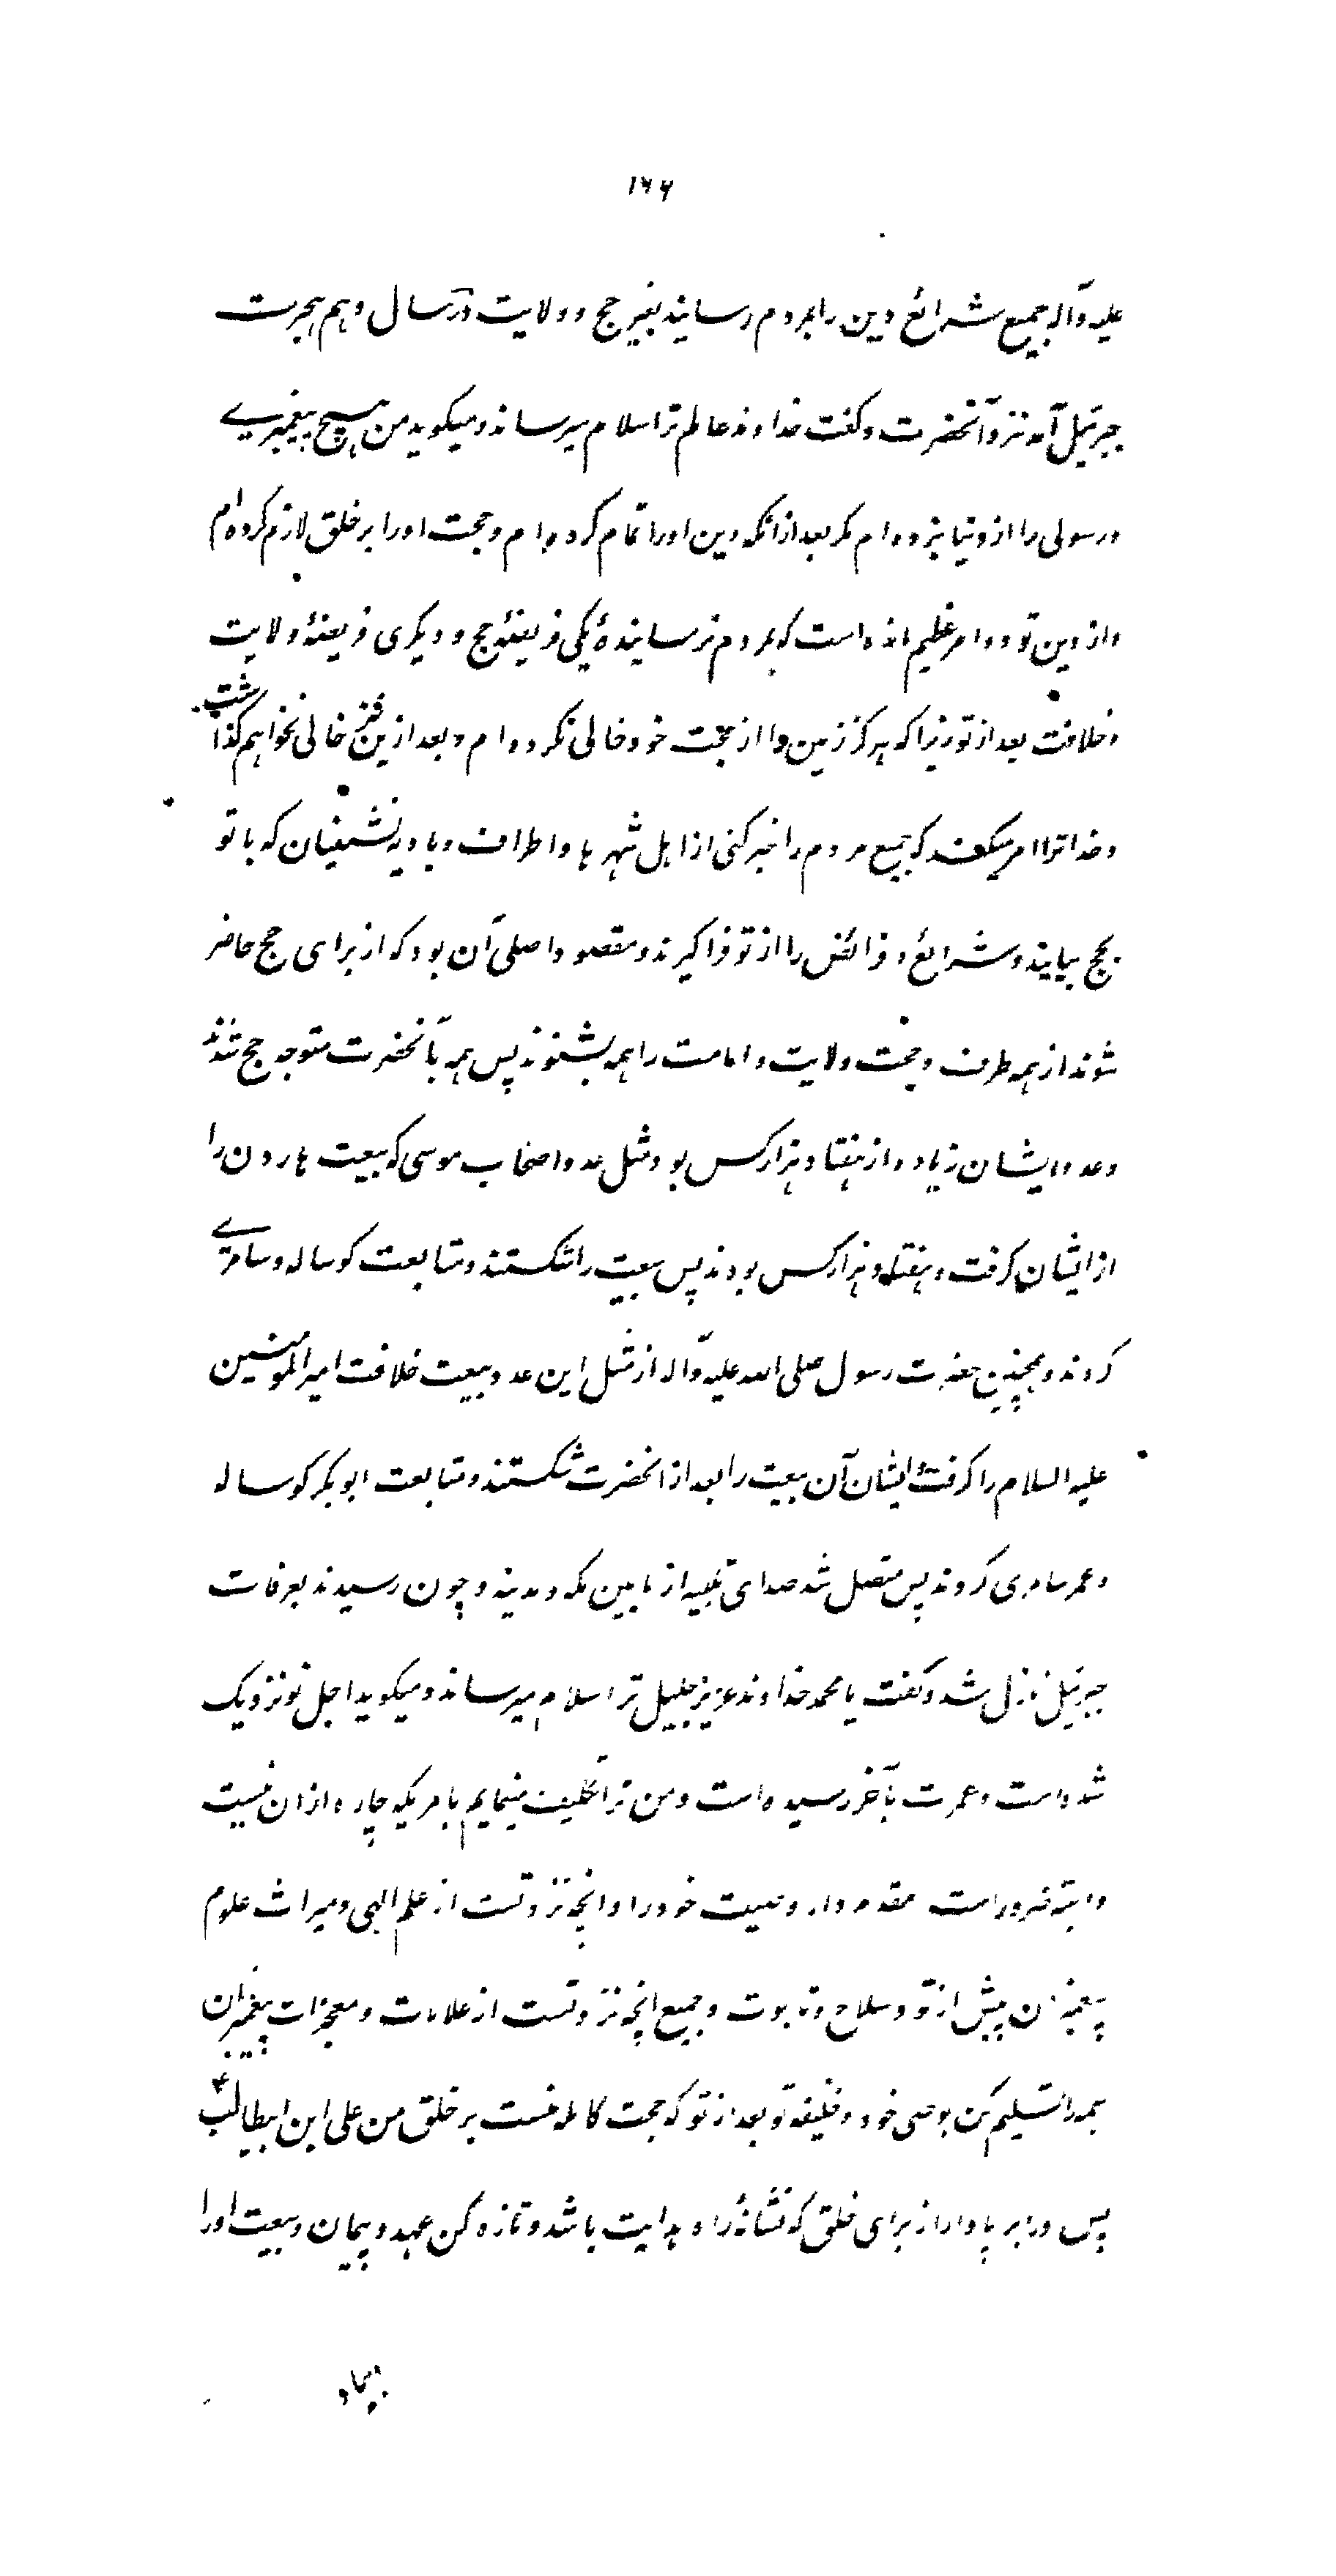 ۱۶۶
علیه وآله جمیع شرائع دین را بمردم رسانید بغیر حج و ولایت در سال دهم هجرت
جبرئیل آمد نزد آنحضرت و گفت خداوند عالم ترا سلام میرساند و میگوید من هیچ پیغمبرے
و رسولی را از دنیا نبرده ام مگر بعد از انکه دین او را تمام کرده ام و حجت او را بر خلق لازم کرده ام
و از دین تو دو امر عظیم مانده است که بمردم نرسانیدهٔ یکی فریضهٔ حج و دیگری فریضهٔ ولایت
و خلافت بعد از تو زیرا که هرگز زمین را از حجت خود خالی نکرده ام و بعد ازین هم خالی نخواهم گذاشت
و خدا ترا امر میکند که جمیع مردم را خبر کنی از اهل شهرها و اطراف و بادیه نشینان که با تو
بحج بیایند و شرائع و فرائض را از تو فرا گیرند و مقصود اصلی آن بود که از برای حج حاضر
شوند از همه طرف و حجت ولایت و امامت را همه بشنوند پس همه با آنحضرت متوجه حج شدند
و عدد ایشان زیاده از هفتاد هزار کس بود مثل عدد اصحاب موسی که بیعت هارون را
از ایشان گرفت و هفتاد هزار کس بودند پس بیعت را شکستند و متابعت گوساله و سامرے
کردند و همچنین حضرت رسول صلی الله علیه وآله از مثل این عدد بیعت خلافت امیرالمومنین
علیه السلام را گرفت و ایشان آن بیعت را بعد از انحضرت شکستند و متابعت ابوبکر گوساله
و عمر سامری کردند پس متصل شد صدای تلبیه از مابین مکه و مدینه و چون رسیدند بعرفات
جبرئیل نازل شد و گفت یا محمد خداوند عزیز جلیل ترا سلام میرساند و میگوید اجل تو نزدیک
شده است و عمرت بآخر رسیده است و من ترا تکلیف مینمایم بامریکه چاره ازان نیست
و البته ضرور است مقدم دار وصیت خود را و انچه نزد تست از علم الهی و میراث علوم
پیغمبران پیش از تو و سلاح و تابوت و جمیع انچه نزد تست از علامات و معجزات پیغمبران
همه را تسلیم کن بوصی خود و خلیفه تو بعد از تو که حجت کامله منست بر خلق من علی ابن ابیطالبؑ
پس او را برپادار از برای خلق که نشانهٔ راه هدایت باشد و تازه کن عهد و پیمان و بیعت او را